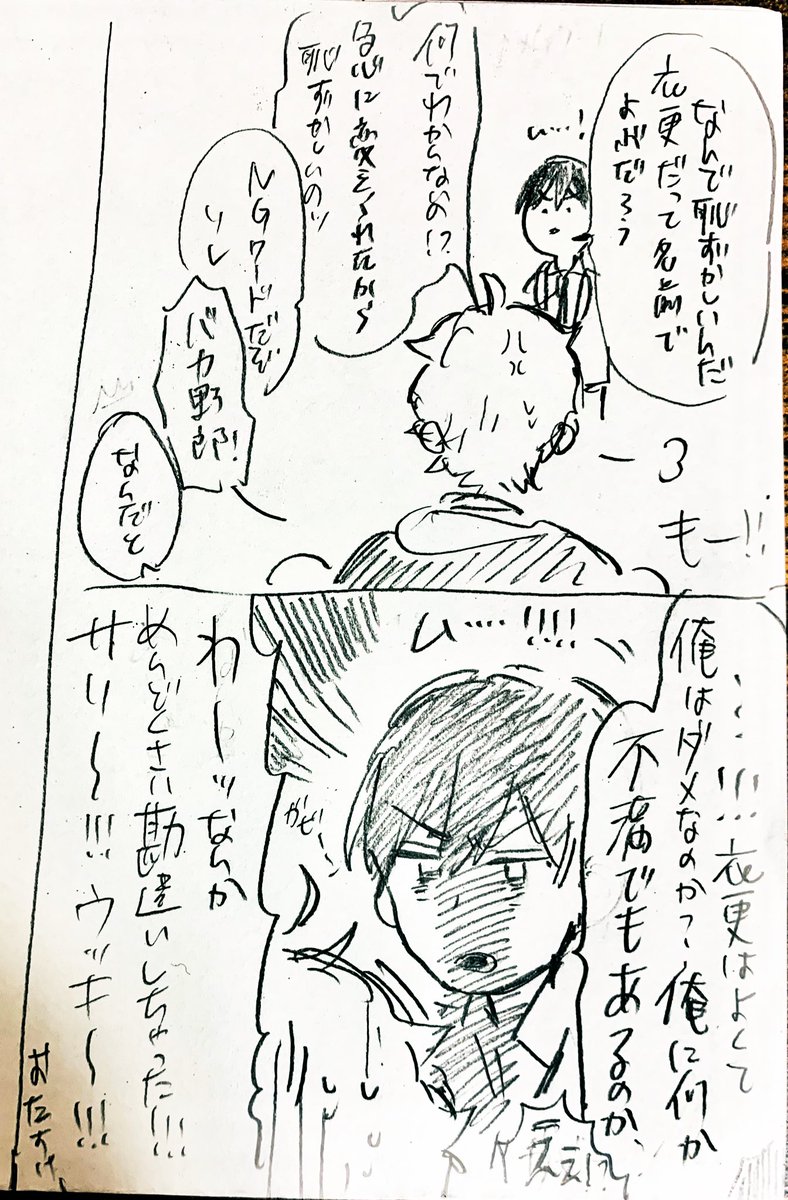 なんで恥ずかしいんだ
衣更だって名前で
よぶだろう
い…!
何でわからないの!?
急に変えられたから
恥ずかしいのッ
NGワードだぞ
ソレ
バカ野郎!
なんだと
もー!!
…!!!衣更はよくて
俺はダメなのか?俺に何か
不満でもあるのか、
い…!!!!
ええ!?
わーッなんか
めんどくさい勘違いしちゃった!!!
サリ〜!!!ウッキ〜!!!
おたすけ